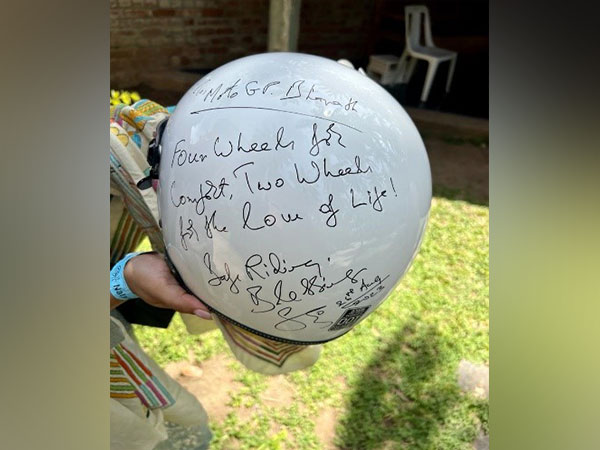 MotoGP. Bharath
Four Wheels for
Comfort, Two Wheels
for the love of Life!
Safe Riding.
Blessing
Aug
2023